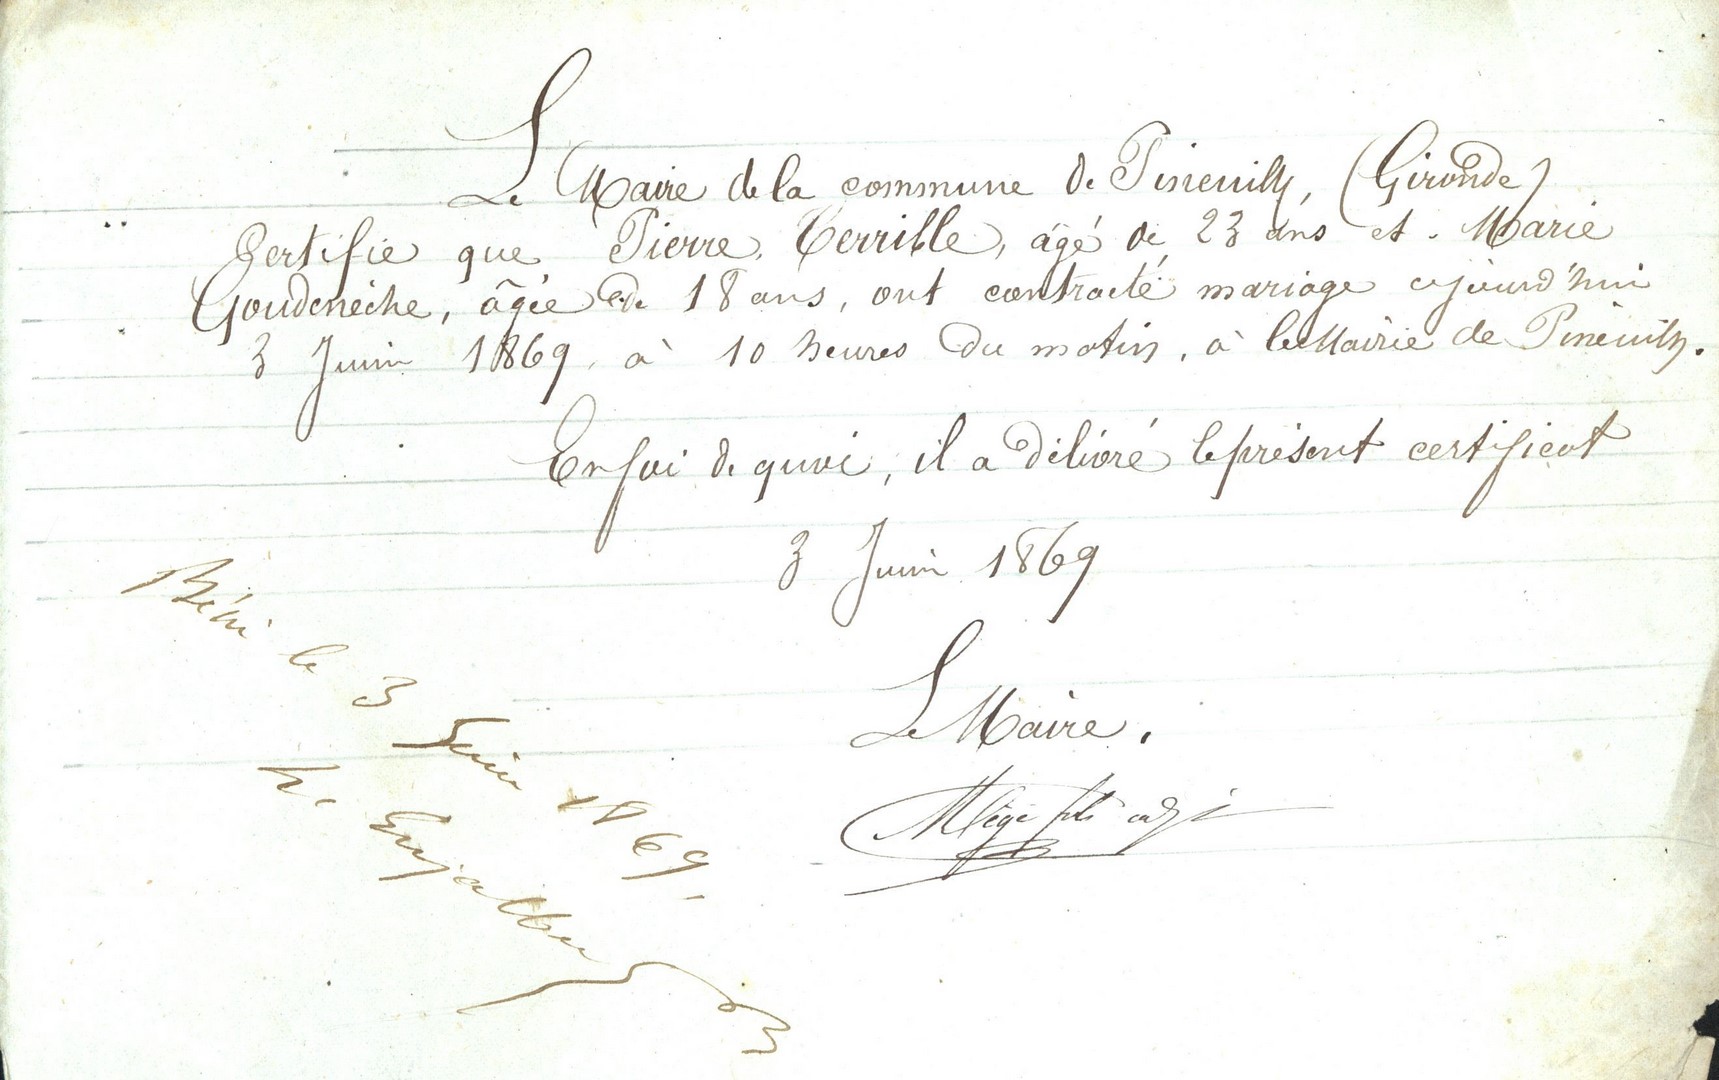 Le Maire de la commune de Pineuilh, (Gironde)
Certifie que Pierre Terrible, âgé de 23 ans et Marie
Goudenèche, âgée de 18 ans, ont contracté mariage aujourd'hui
3 Juin 1869, à 10 heures du matin, à la Mairie de Pineuilh.
En foi de quoi, il a délivré le présent certificat
3 Juin 1869
Le Maire.
fils adj
Béni le 3 Juin 1869.